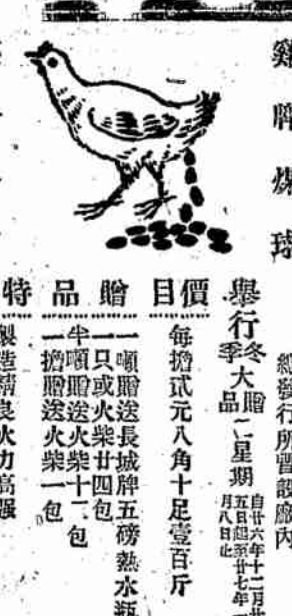 雞牌煤球
總發行所暫設廠內
舉行冬季大贈品二星期
自廿六年十二月廿
五日起至廿七年一
月八日止
價目
每擔贰元八角十足壹百斤
贈品
一噸贈送長城牌五磅熱水瓶
一只或火柴廿四包
半噸贈送火柴十二包
一擔贈送火柴一包
特
製造精良火力高强